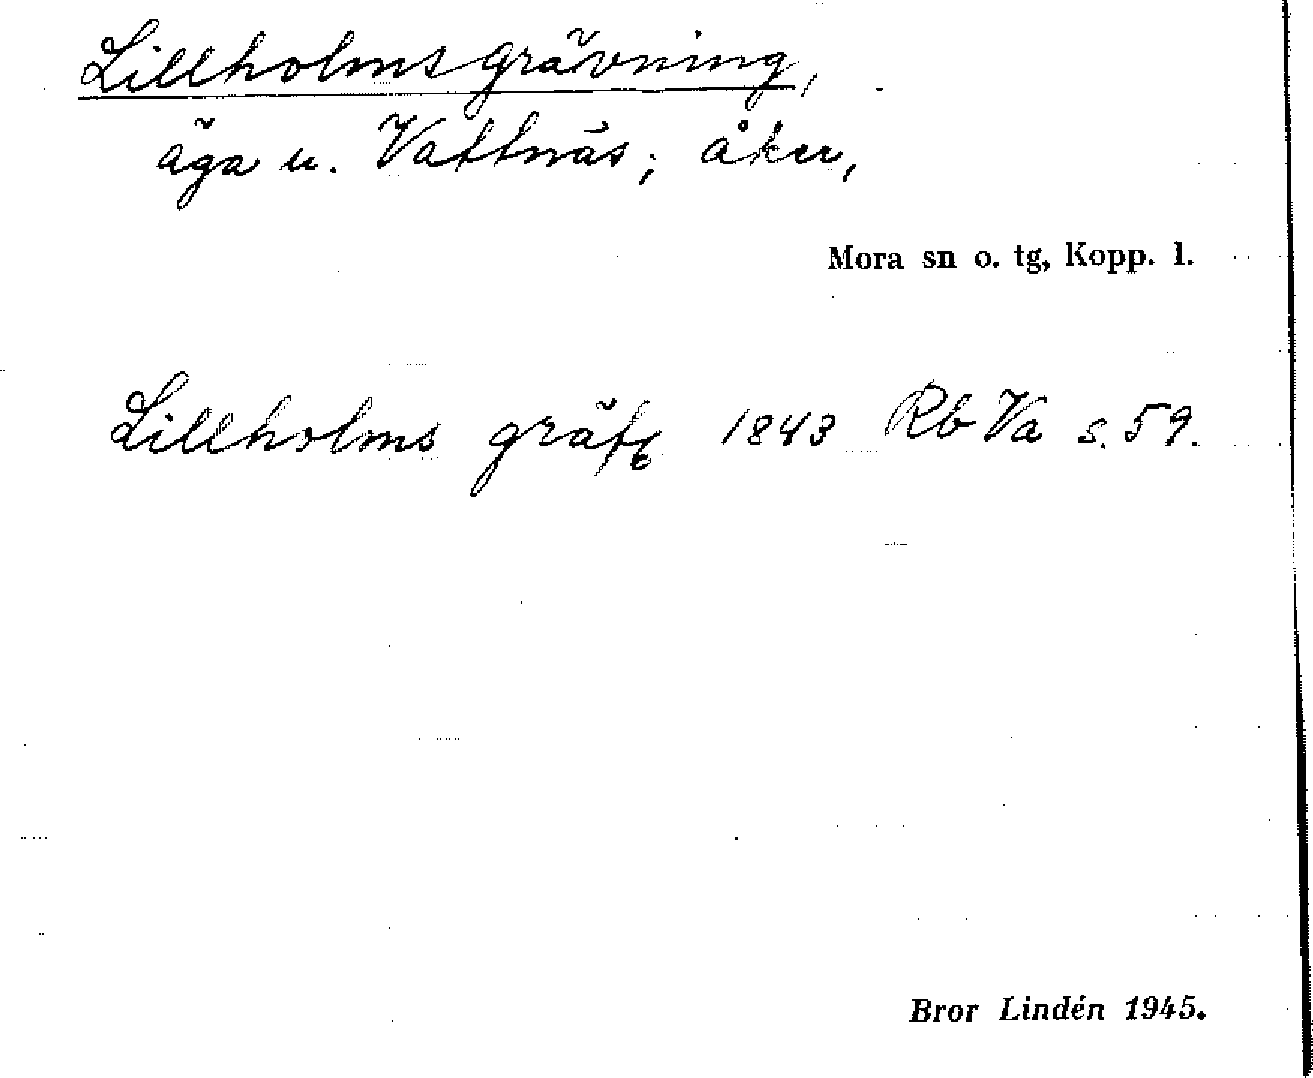 Lillholmsgrävning,
äga u. Vattnäs; åker,
Mora sn o. tg, Kopp. l.
Lillholms 1843 Rb Va s. 59.
Bror Lindén 1945.